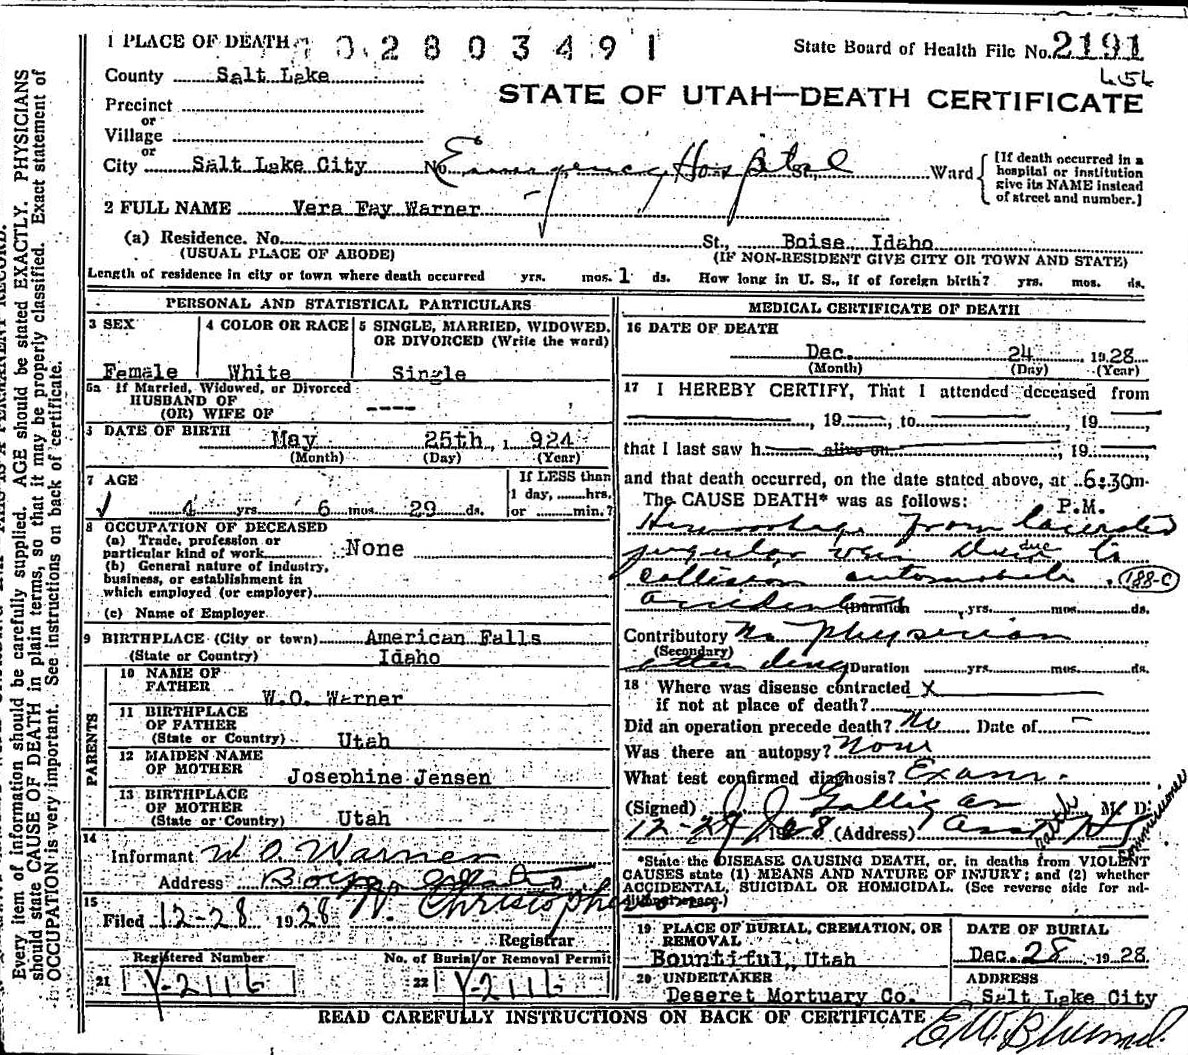 1 PLACE OF DEATH 2803491 State Board of Health File No. 2191
County Salt Lake
STATE OF UTAH—DEATH CERTIFICATE
Precinct
or
Village
or
City Salt Lake City No. Emergency Hospital St., Ward [If death occurred in a hospital or institution give its NAME instead of street and number.]
2 FULL NAME Vera Fay Warner
(a) Residence. No. St., Boise, Idaho
(USUAL PLACE OF ABODE) (IF NON-RESIDENT GIVE CITY OR TOWN AND STATE)
Length of residence in city or town where death occurred yrs. mos. 1 ds. How long in U. S., if of foreign birth? yrs. mos. ds.
PERSONAL AND STATISTICAL PARTICULARS
3 SEX 4 COLOR OR RACE 5 SINGLE, MARRIED, WIDOWED,
OR DIVORCED (Write the word)
Female White Single
5a If Married, Widowed, or Divorced
HUSBAND OF
(OR) WIFE OF ----
DATE OF BIRTH May 25th, 1924
(Month) (Day) (Year)
7 AGE If LESS than
1 day, hrs.
4 yrs. 6 mos. 29 ds. or min.?
8 OCCUPATION OF DECEASED
(a) Trade, profession or
particular kind of work None
(b) General nature of industry,
business, or establishment in
which employed (or employer)
(c) Name of Employer
9 BIRTHPLACE (City or town) American Falls
(State or Country) Idaho
PARENTS
10 NAME OF
FATHER W.O. Warner
11 BIRTHPLACE
OF FATHER
(State or Country) Utah
12 MAIDEN NAME
OF MOTHER Josephine Jensen
13 BIRTHPLACE
OF MOTHER
(State or Country) Utah
14
Informant W O Warner
Address Boise Idaho
15
Filed 12-28 1928 Christopherson
Registrar
Registered Number No. of Burial or Removal Permit
21 Y-2116 22 Y-2116
MEDICAL CERTIFICATE OF DEATH
16 DATE OF DEATH
Dec. 24, 1928
(Month) (Day) (Year)
17 I HEREBY CERTIFY, That I attended deceased from
, 19 , to , 19 ,
that I last saw h alive on , 19
and that death occurred, on the date stated above, at 6:30 m.
The CAUSE DEATH* was as follows: P.M.
Hemorrhage from lacerated
jugular vein due to
collision automobile. 188-C
accident (Duration yrs. mos. ds.
Contributory No physician
(Secondary)
attending (Duration yrs. mos. ds.
18 Where was disease contracted X
if not at place of death?
Did an operation precede death? No Date of -
Was there an autopsy? None
What test confirmed diagnosis? Exam.
(Signed) J J Galligan M. D.
12-27 1928 (Address) Asst Health Commissioner
*State the DISEASE CAUSING DEATH, or, in deaths from VIOLENT
CAUSES state (1) MEANS AND NATURE OF INJURY; and (2) whether
ACCIDENTAL, SUICIDAL OR HOMICIDAL. (See reverse side for ad-
ditional space.)
19 PLACE OF BURIAL, CREMATION, OR
REMOVAL
Bountiful, Utah
DATE OF BURIAL
Dec. 28 1928.
20 UNDERTAKER
Deseret Mortuary Co.
ADDRESS
Salt Lake City
READ CAREFULLY INSTRUCTIONS ON BACK OF CERTIFICATE
Every item of information should be carefully supplied. AGE should be stated EXACTLY. PHYSICIANS
should state CAUSE OF DEATH in plain terms, so that it may be properly classified. Exact statement of
OCCUPATION is very important. See instructions on back of certificate.